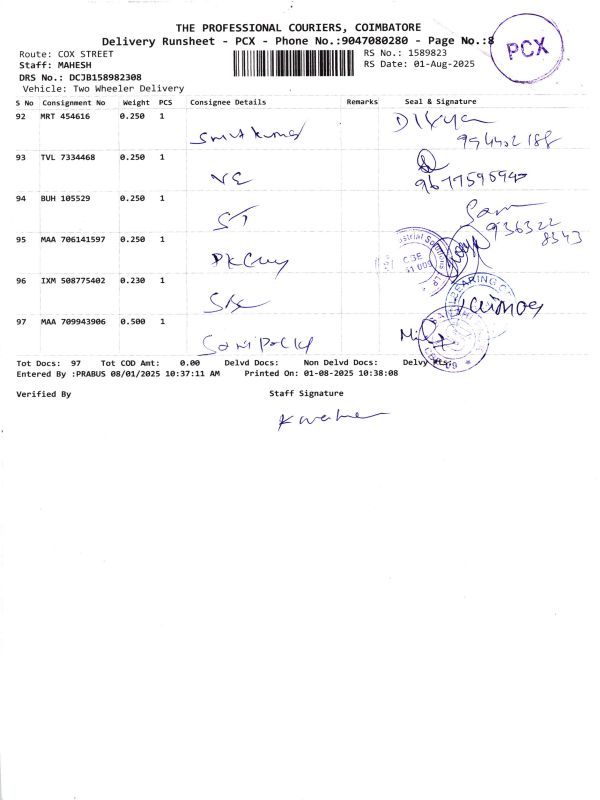 THE PROFESSIONAL COURIERS, COIMBATORE
Delivery Runsheet - PCX - Phone No.:9047080280 - Page No.:8
PCX
Route: COX STREET
RS No.: 1589823
Staff: MAHESH
RS Date: 01-Aug-2025
DRS No.: DCJB158982308
Vehicle: Two Wheeler Delivery
S No Consignment No Weight PCS Consignee Details Remarks Seal & Signature
92 MRT 454616 0.250 1
93 TVL 7334468 0.250 1
VE
94 BUH 105529 0.250 1
ST
Sam
936322
8343
95 MAA 706141597 0.250 1
CBE
96 IXM 508775402 0.230 1
BEARING
97 MAA 709943906 0.500 1
Tot Docs: 97 Tot COD Amt: 0.00 Delvd Docs: Non Delvd Docs: Delvy
Entered By :PRABUS 08/01/2025 10:37:11 AM Printed On: 01-08-2025 10:38:08
Verified By Staff Signature